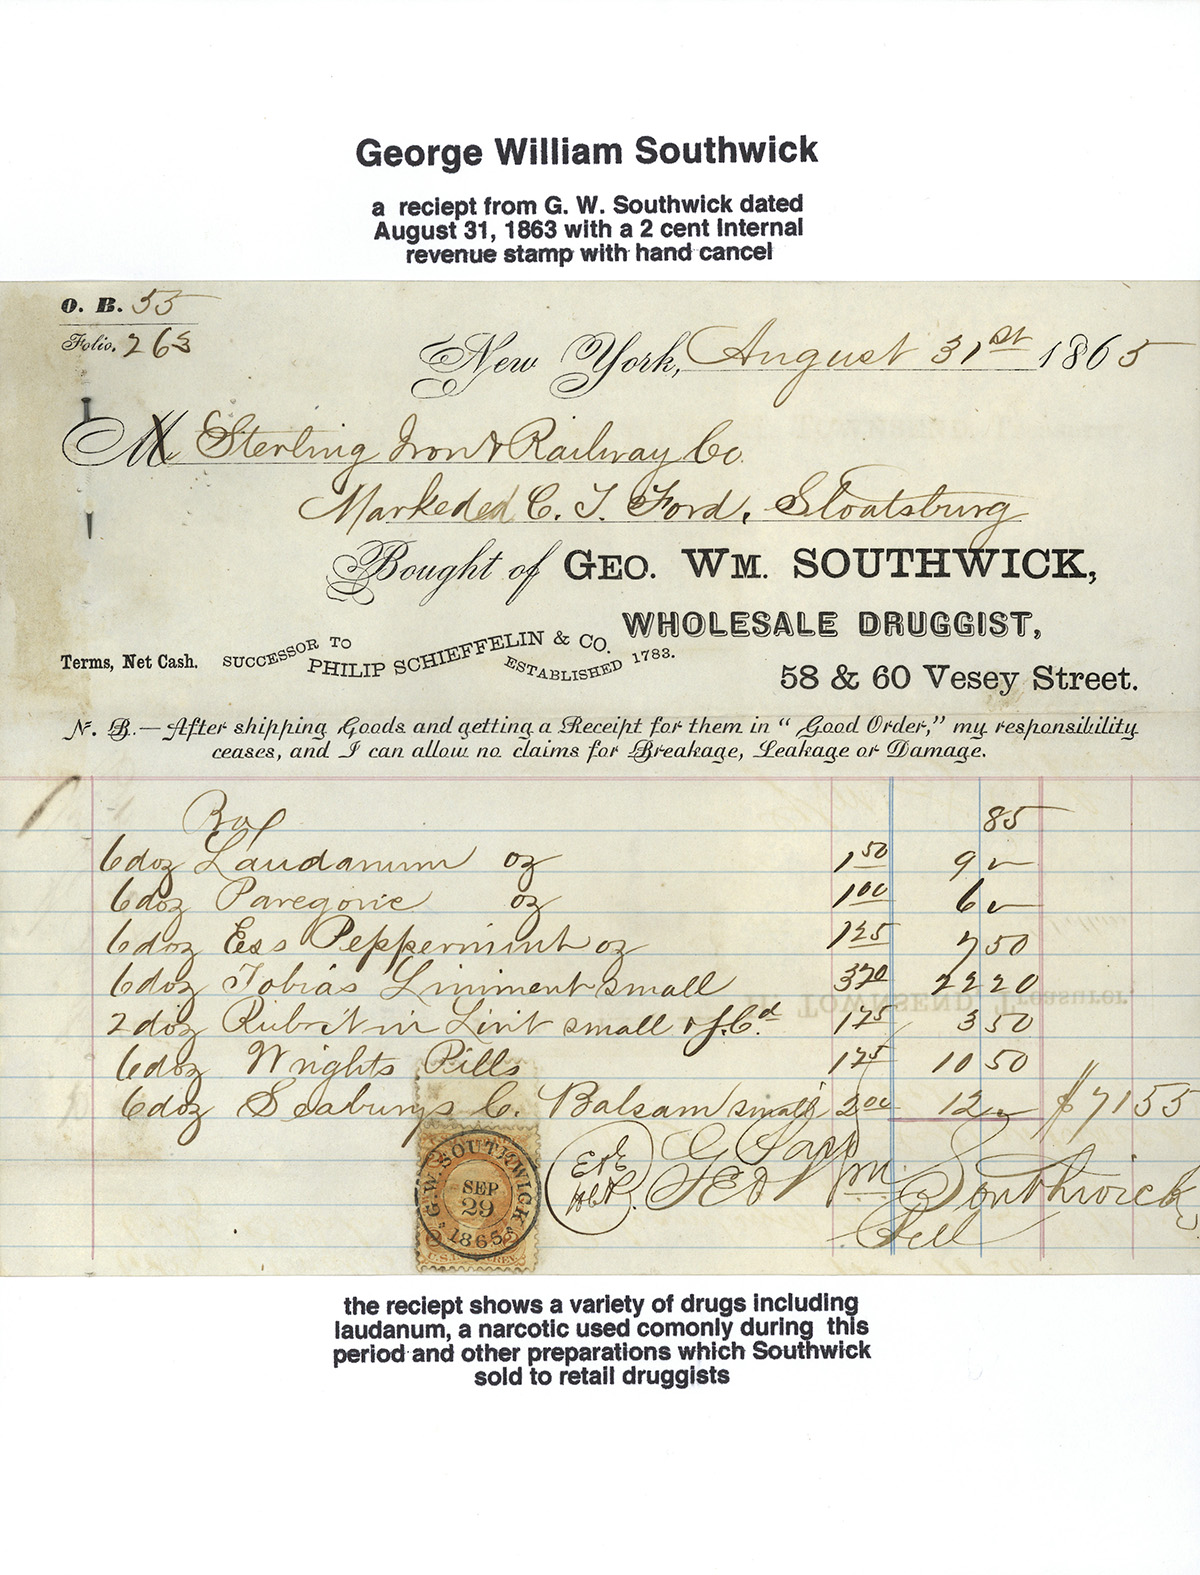 George William Southwick
a reciept from G. W. Southwick dated
August 31, 1863 with a 2 cent Internal
revenue stamp with hand cancel
O. B. 55
Folio. 263
New York, August 31st 1865
M Sterling Iron & Railway Co
Marked C. T. Ford, Sloatsburg
Bought of GEO. WM. SOUTHWICK,
WHOLESALE DRUGGIST,
Terms, Net Cash. SUCCESSOR TO PHILIP SCHIEFFELIN & CO. ESTABLISHED 1783.
58 & 60 Vesey Street.
N. B.—After shipping Goods and getting a Receipt for them in "Good Order," my responsibility
ceases, and I can allow no claims for Breakage, Leakage or Damage.
85
6 doz Laudanum oz 1 50 9
6 doz Paregoric oz 1 00 6
6 doz Ess Peppermint oz 1 25 7 50
6 doz Tobias Liniment small 3 70 22 20
2 doz small 1 75 3 50
6 doz Wrights Pills 1 75 10 50
6 doz Seaburys C. Balsam small 2 00 12 $71 55
G. W. SOUTHWICK
SEP
29
1865
Geo Wm Southwick
TOWNSEND, Treasurer.
the reciept shows a variety of drugs including
laudanum, a narcotic used comonly during this
period and other preparations which Southwick
sold to retail druggists